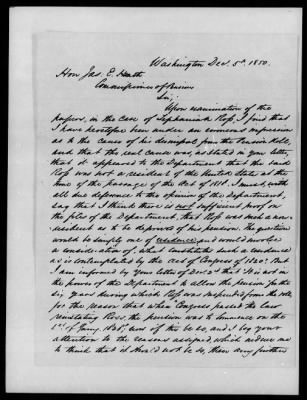 Washington Dec. 5th 1850.
Hon Jas. E. Heath
Commissioner of Pensions
Sir,
Upon examination of the
papers, in the case of Zephaniah Ross, I find that
I have heretofore been under an erroneous impression
as to the cause of his dismissal from the Pension Rolls,
and that the real cause was, as stated in your letter,
that it appeared to the Department that the said
Ross was not a resident of the United States at the
time of the passage of the Act of 1818. I must, with
all due deference to the opinion of the Department,
say that I think there is not sufficient proof on
the files of the Department, that Ross was such a non-
resident as to be deprived of his pension. The question
would be simply one of residence, and would involve
a consideration of, what constitutes such a residence
as is contemplated by the act of Congress of 1820. But
I am informed by your letter of Dec. 2d that it is not in
the power of the Department to allow the pension for the
six years during which Ross was suspended from the roll,
for the reason that when Congress passed the law
reinstating Ross, the pension was to commence on the
1st of Jany, 1826, now if this be so, and I beg your
attention to the reasons assigned, which induce me
to think that it should not be so, then any further